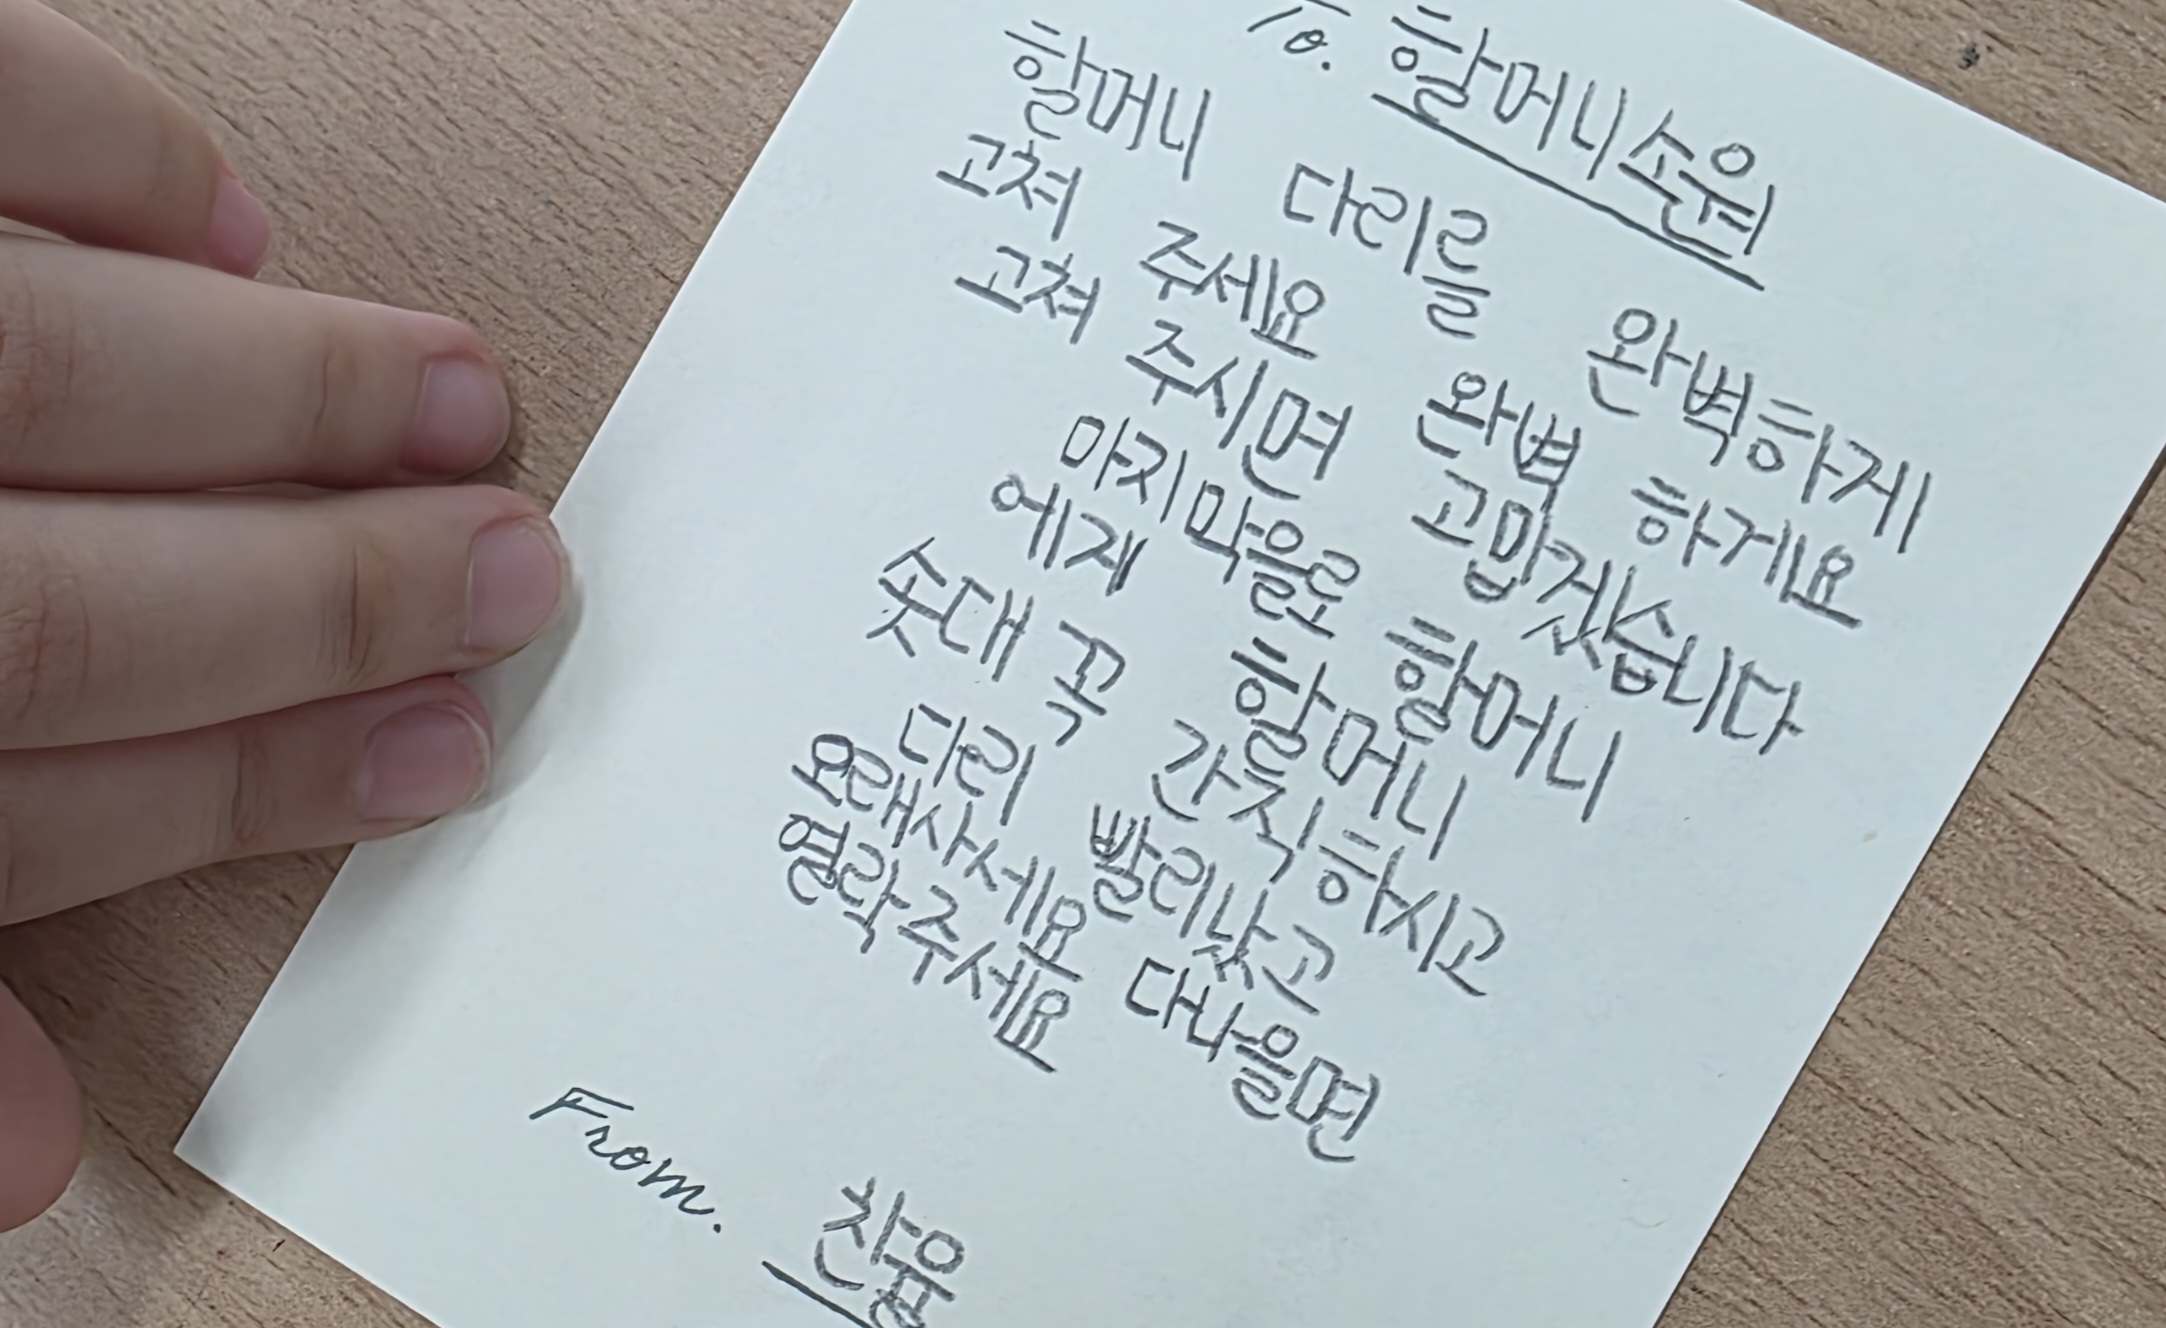 To. 할머니소원
할머니 다리를 완벽하게
고쳐 주세요 완벽 하게요
고쳐 주시면 고맙겠습니다
마지막을로 할머니
에게 할머니
솟대 꼭 간직하시고
다리 빨리났고
오래사세요 다나을면
열락주세요
From. 찬율